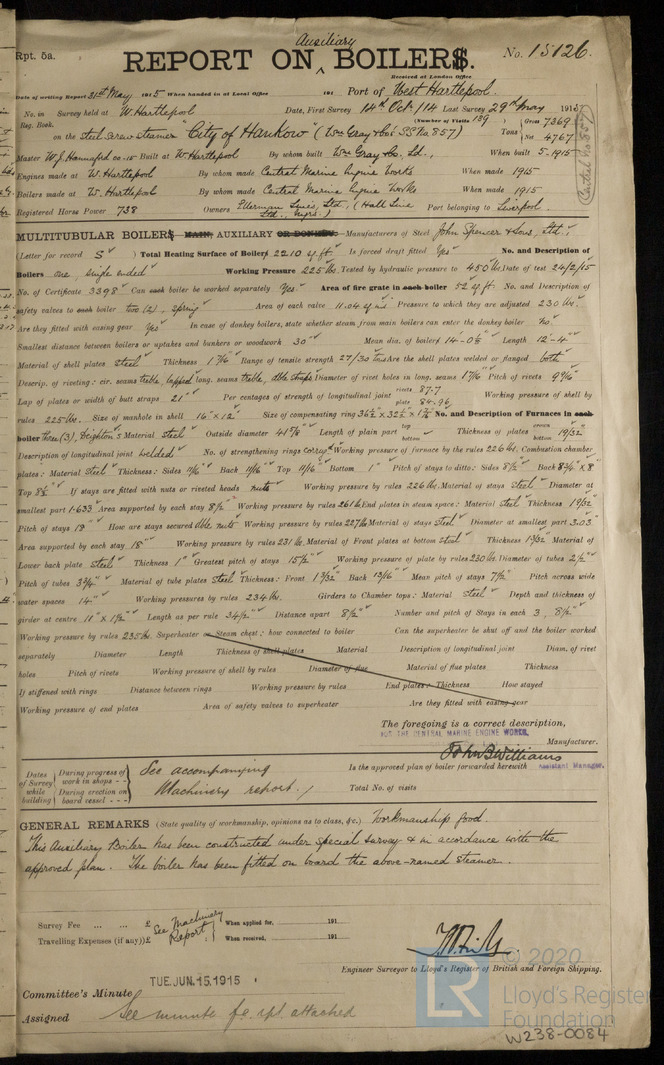 Rpt. 5a.
Auxiliary
REPORT ON BOILERS.
No. 15126.
Received at London Office
Date of writing Report 31st May 1915 When handed in at Local Office 191 Port of West Hartlepool.
No. in Survey held at W. Hartlepool Date, First Survey 14th Oct. /14 Last Survey 29th May 1915
Reg. Book. (Number of Visits 139)
on the Steel Screw Steamer "City of Hankow" (Wm Gray & Co's SS No. 857) Tons Gross 7369 Net 4767
Master W. J. Hannaford Built at W. Hartlepool By whom built Wm Gray & Co. Ld., When built 5-1915
Engines made at W. Hartlepool By whom made Central Marine Engine Works When made 1915
Boilers made at W. Hartlepool By whom made Central Marine Engine Works When made 1915
Registered Horse Power 738 Owners Ellerman Lines, Ltd. (Hall Line Ltd., Mgrs.) Port belonging to Liverpool
MULTITUBULAR BOILERS MAIN, AUXILIARY OR DONKEY. Manufacturers of Steel John Spencer & Sons, Ltd.,
(Letter for record S) Total Heating Surface of Boilers 2210 sq ft. Is forced draft fitted Yes No. and Description of
Boilers one, single ended Working Pressure 225 lbs. Tested by hydraulic pressure to 450 lbs. Date of test 24/2/15
No. of Certificate 3398 Can each boiler be worked separately Yes Area of fire grate in each boiler 52 sq ft. No. and Description of
safety valves to each boiler two (2), spring Area of each valve 11.04 sq ins. Pressure to which they are adjusted 230 lbs.
Are they fitted with easing gear Yes In case of donkey boilers, state whether steam from main boilers can enter the donkey boiler No.
Smallest distance between boilers or uptakes and bunkers or woodwork 30" Mean dia. of boilers 14-0⅝ Length 12'-4"
Material of shell plates Steel Thickness 1 7/16" Range of tensile strength 27/30 tons Are the shell plates welded or flanged both
Descrip. of riveting: cir. seams treble, lapped long. seams treble, dble straps Diameter of rivet holes in long. seams 1 7/16" Pitch of rivets 9 9/16"
Lap of plates or width of butt straps 21" Per centages of strength of longitudinal joint rivets 87.7 plate 84.96 Working pressure of shell by
rules 225 lbs. Size of manhole in shell 16" x 12" Size of compensating ring No. and Description of Furnaces in each
boiler Three (3), Deighton's Material Steel Outside diameter 41 5/8" Length of plain part top bottom Thickness of plates crown bottom 19/32"
Description of longitudinal joint welded No. of strengthening rings corrg'd Working pressure of furnace by the rules 226 lbs. Combustion chamber
plates: Material Steel Thickness: Sides 11/16" Back 11/16" Top 11/16" Bottom 1" Pitch of stays to ditto: Sides 8½" Back 8¾" x 8"
Top 8½" If stays are fitted with nuts or riveted heads nuts Working pressure by rules 226 lbs. Material of stays Steel Diameter at
smallest part 1.633 Area supported by each stay 8½" Working pressure by rules 261 lbs. End plates in steam space: Material Steel Thickness 19/32"
Pitch of stays 18" How are stays secured dble nuts Working pressure by rules 227 lbs. Material of stays Steel Diameter at smallest part 3.03
Area supported by each stay 18" Working pressure by rules 231 lbs. Material of Front plates at bottom Steel Thickness 19/32" Material of
Lower back plate Steel Thickness 1" Greatest pitch of stays 15½" Working pressure of plate by rules 230 lbs. Diameter of tubes 2½"
Pitch of tubes 3¾" Material of tube plates Steel Thickness: Front 1 9/32" Back 13/16" Mean pitch of stays 7½" Pitch across wide
water spaces 14" Working pressures by rules 234 lbs. Girders to Chamber tops: Material Steel Depth and thickness of
girder at centre 11" x 1½" Length as per rule 34½" Distance apart 8½" Number and pitch of Stays in each 3, 8½"
Working pressure by rules 235 lbs. Superheater or Steam chest: how connected to boiler Can the superheater be shut off and the boiler worked
separately Diameter Length Thickness of shell plates Material Description of longitudinal joint Diam. of rivet
holes Pitch of rivets Working pressure of shell by rules Diameter of flue Material of flue plates Thickness
If stiffened with rings Distance between rings Working pressure by rules End plates: Thickness How stayed
Working pressure of end plates Area of safety valves to superheater Are they fitted with easing gear
The foregoing is a correct description,
FOR THE CENTRAL MARINE ENGINE WORKS,
Manufacturer.
John B. Williams
Assistant Manager.
Dates of Survey while building
During progress of work in shops - -
During erection on board vessel - - -
See accompanying
Machinery report.
Is the approved plan of boiler forwarded herewith
Total No. of visits
GENERAL REMARKS (State quality of workmanship, opinions as to class, &c.) Workmanship good.
This Auxiliary Boiler has been constructed under special survey & in accordance with the
approved plan. The boiler has been fitted on board the above-named steamer.
Survey Fee ... ... £ When applied for, 191
See Machinery Report
Travelling Expenses (if any) £ When received, 191
Engineer Surveyor to Lloyd's Register of British and Foreign Shipping.
Committee's Minute TUE. JUN. 15. 1915
Assigned See minute f.e. rpt. attached
© 2020
LR
Lloyd's Register
Foundation
W238-0084